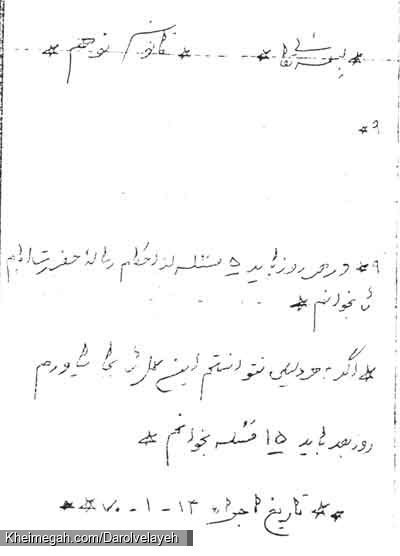 * بسمه تعالی * * قانون نوزدهم *
* ۹
* ۹ در هر روز باید ۵ مسئله از احکام رساله حضرت امام
را بخوانم *
* اگر به هر دلیلی نتوانستم این عمل را بجا بیاورم
روز بعد باید ۱۵ مسئله بخوانم *
** تاریخ اجراء ۱۳ - ۱ - ۷۰ **
Kheimegah.com/Darolvelayeh